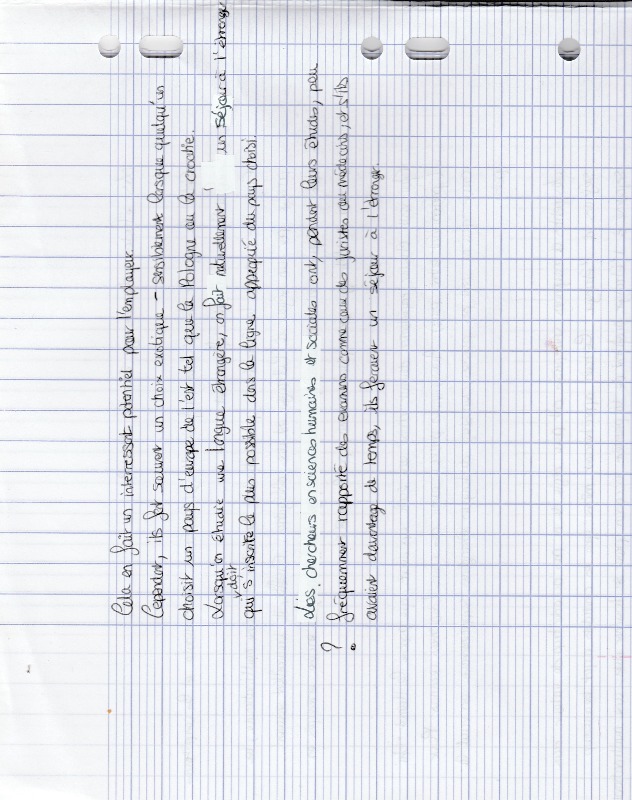 Cela en fait un interressant potentiel pour l'employeur.
Cependant, ils font souvent un choix exotique - sensiblement lorsque quelqu'un
choisit un pays d'europe de l'est tel que la Pologne ou la croatie.
Lorsqu'on étudie une langue étrangère, on fait naturellement un séjour à l'étranger
doit
qui s'inscrire le plus possible dans la ligne appropriée du pays choisi.
Les chercheurs en sciences humaines et sociales ont, pendant leurs études, peu
? fréquemment rapporté des examens comme ceux des juristes ou médecins, et s'ils
avaient davantage de temps, ils feraient un séjour à l'étranger.